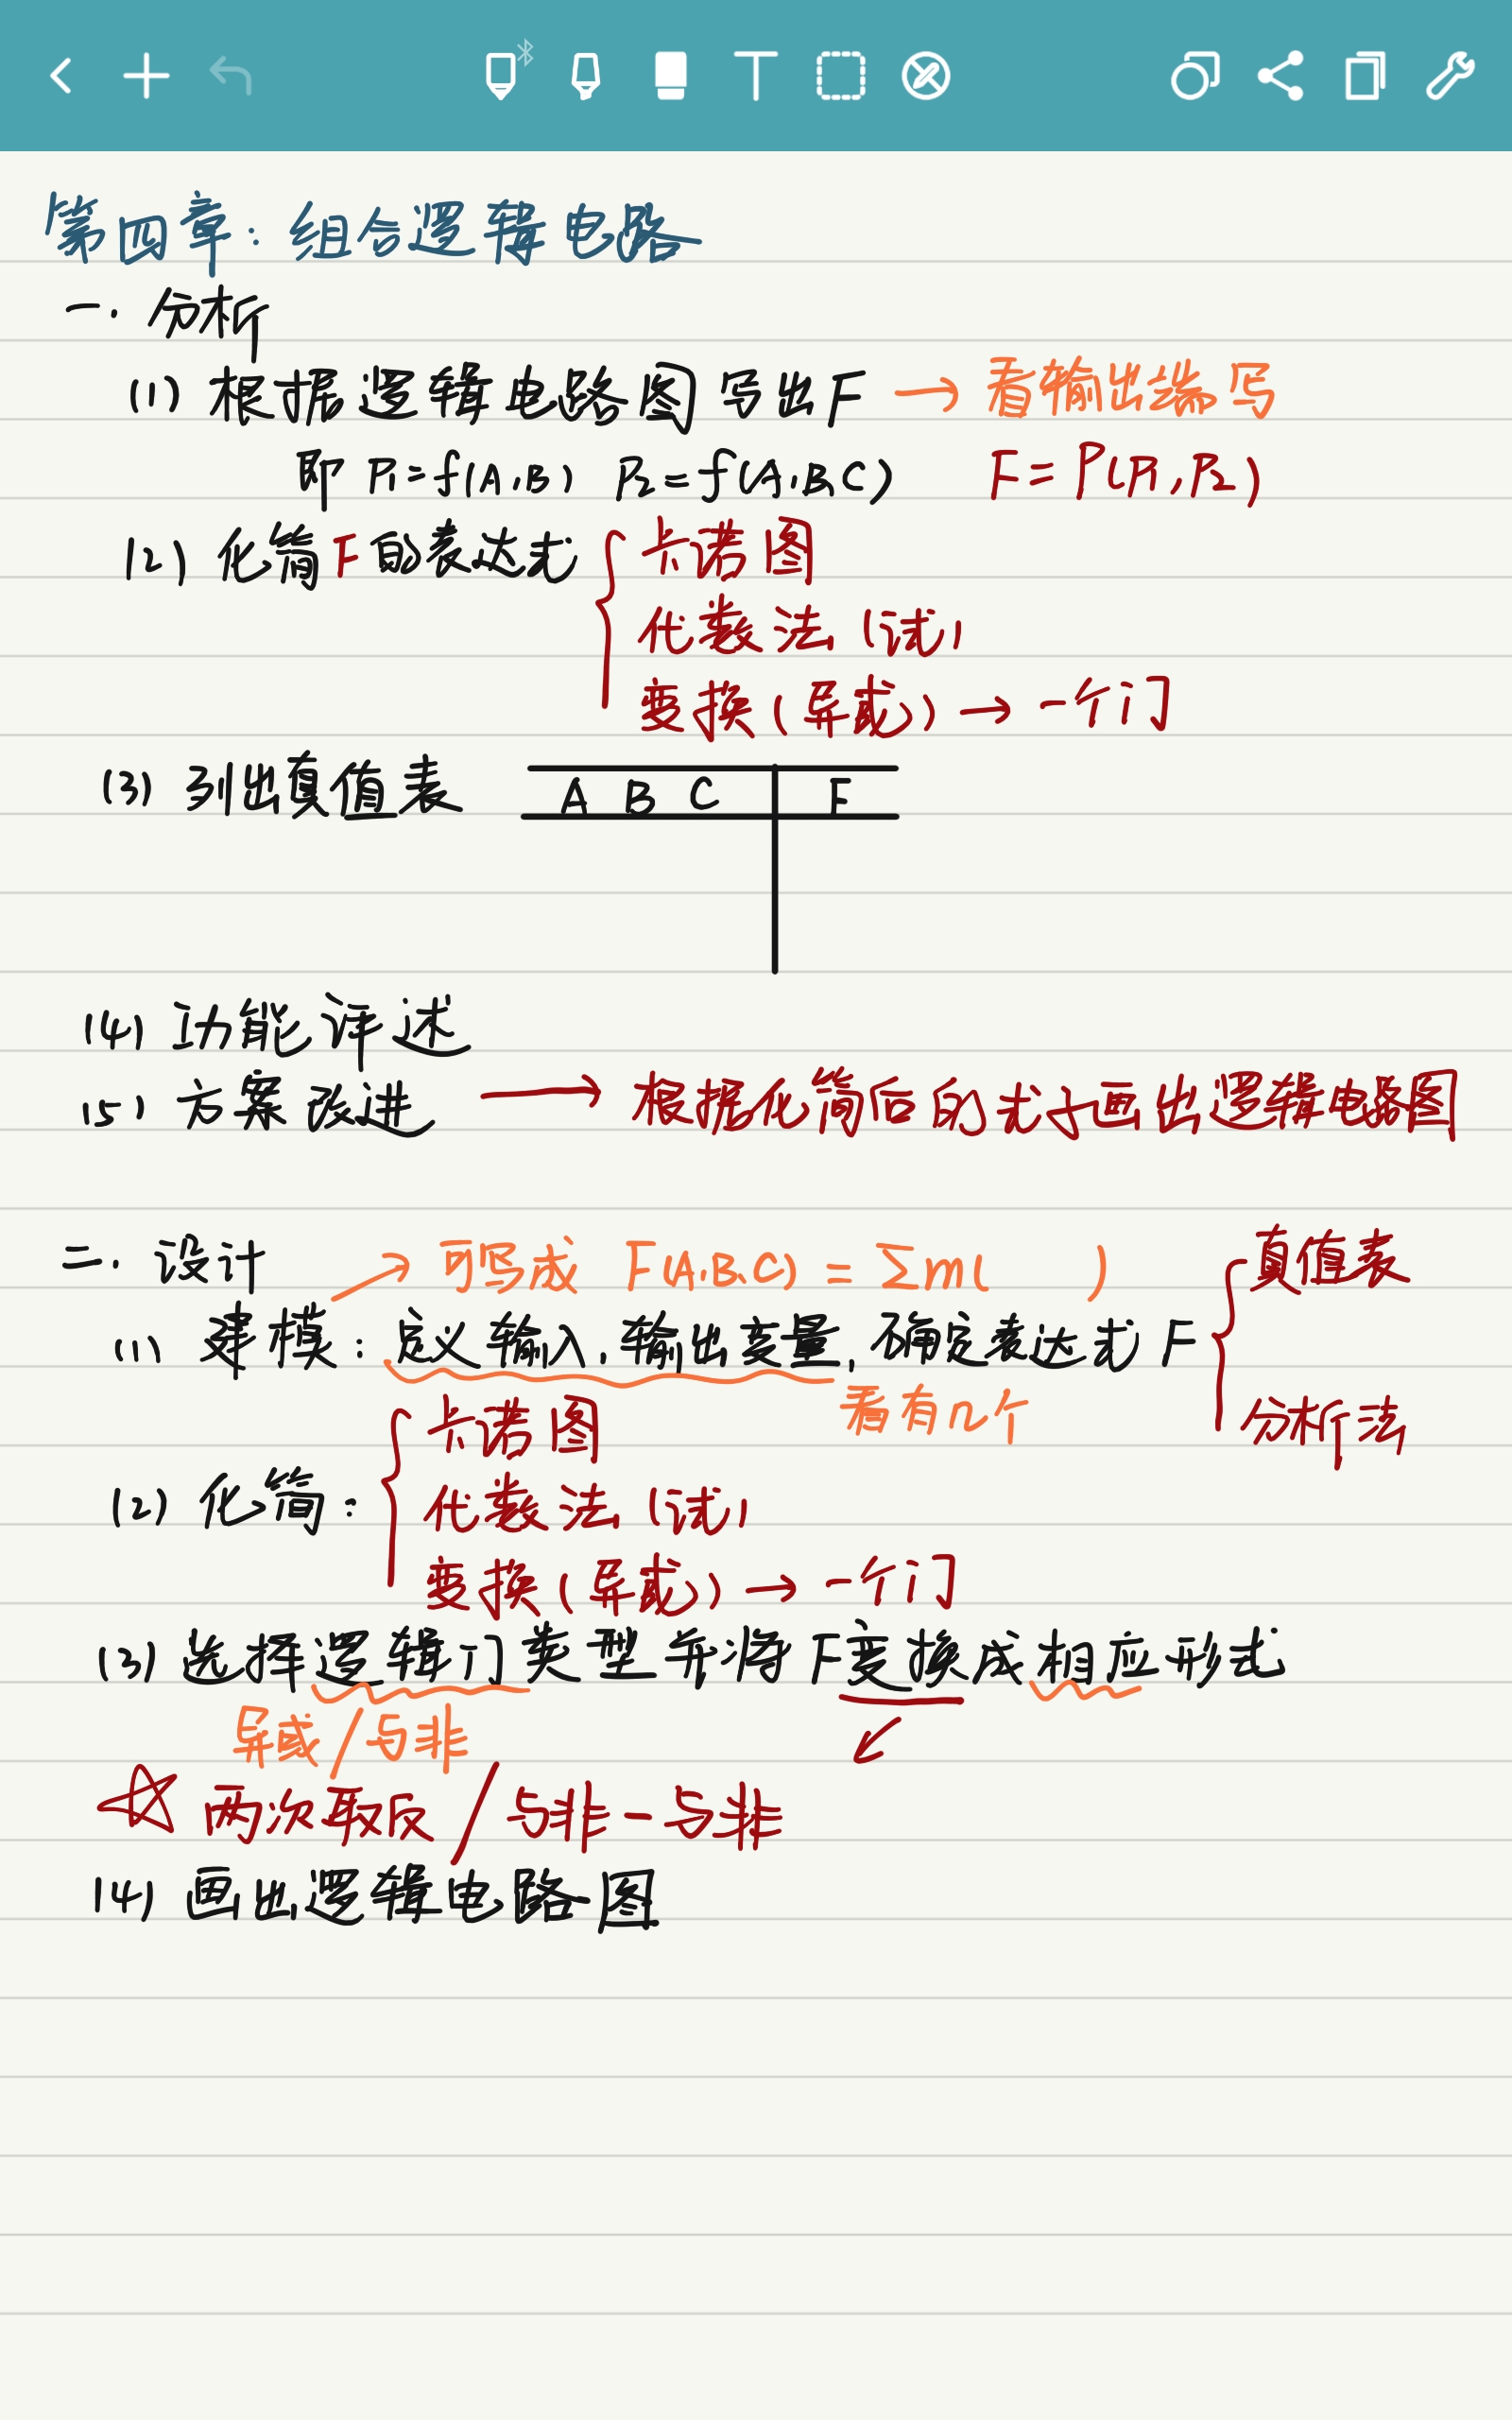 第四章：组合逻辑电路
一. 分析
(1) 根据逻辑电路图写出F → 看输出端写
即 P1=f(A,B) P2=f(A,B,C) F=P(P1,P2)
(2) 化简F的表达式 { 卡诺图
代数法(试)
变换(异或) → 一个门
(3) 列出真值表 A B C F
(4) 功能评述
(5) 方案改进 → 根据化简后的式子画出逻辑电路图
二. 设计 → 可写成 F(A.B.C) = Σm( ) { 真值表
(1) 建模：定义输入,输出变量,确定表达式F
看有几个 分析法
(2) 化简： { 卡诺图
代数法(试)
变换(异或) → 一个门
(3) 选择逻辑门类型并将F变换成相应形式
异或/与非
☆ 两次取反/与非-与非
(4) 画出逻辑电路图